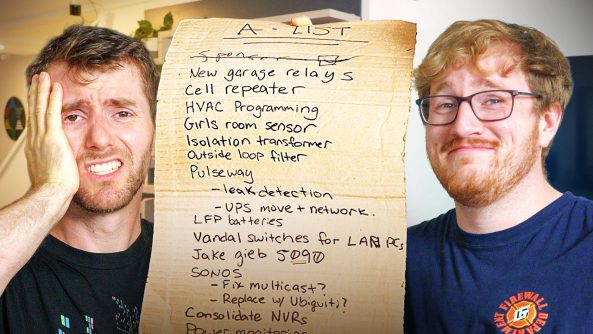 A-LIST
New garage relays
Cell repeater
HVAC Programming
Girls room sensor
Isolation transformer
Outside loop filter
Pulseway
- leak detection
- UPS move + network.
LFP batteries
Vandal switches for LAN PCs
Jake gieb 5090
SONOS
- Fix multicast?
- Replace w/ Ubiquiti?
Consolidate NVRs
Power monitoring
FIREWALL